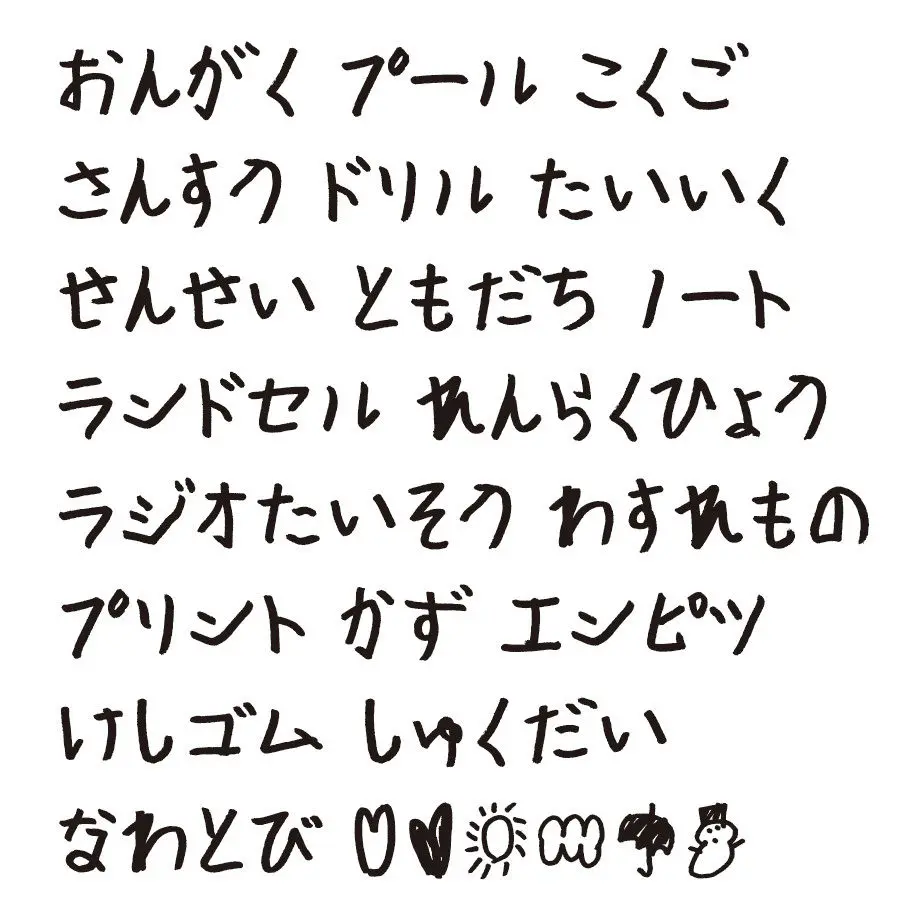 おんがく プール こくご
さんすう ドリル たいいく
せんせい ともだち ノート
ランドセル れんらくひょう
ラジオたいそう わすれもの
プリント かず エンピツ
けしゴム しゅくだい
なわとび ♡♥☀☁☂☃